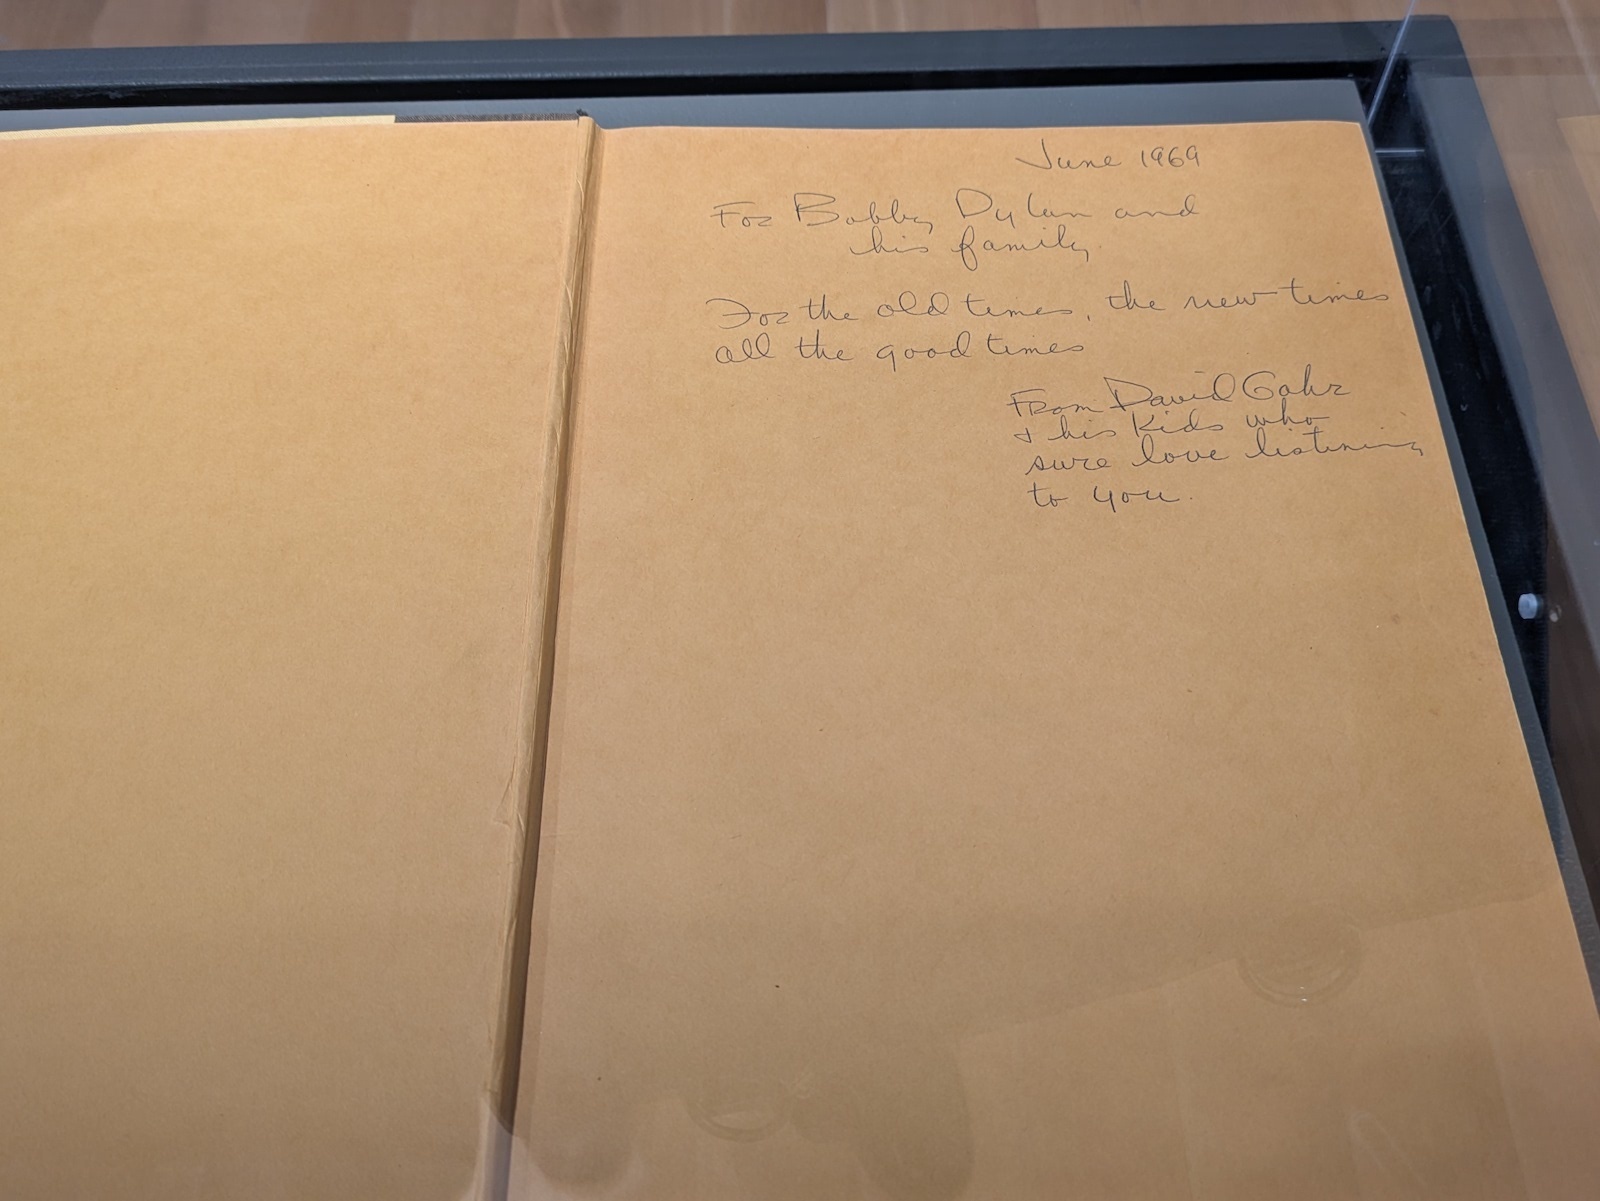 June 1969
For Bobby Dylan and
his family.
For the old times, the new times
all the good times
From David Gahr
+ his kids who
sure love listening
to you.